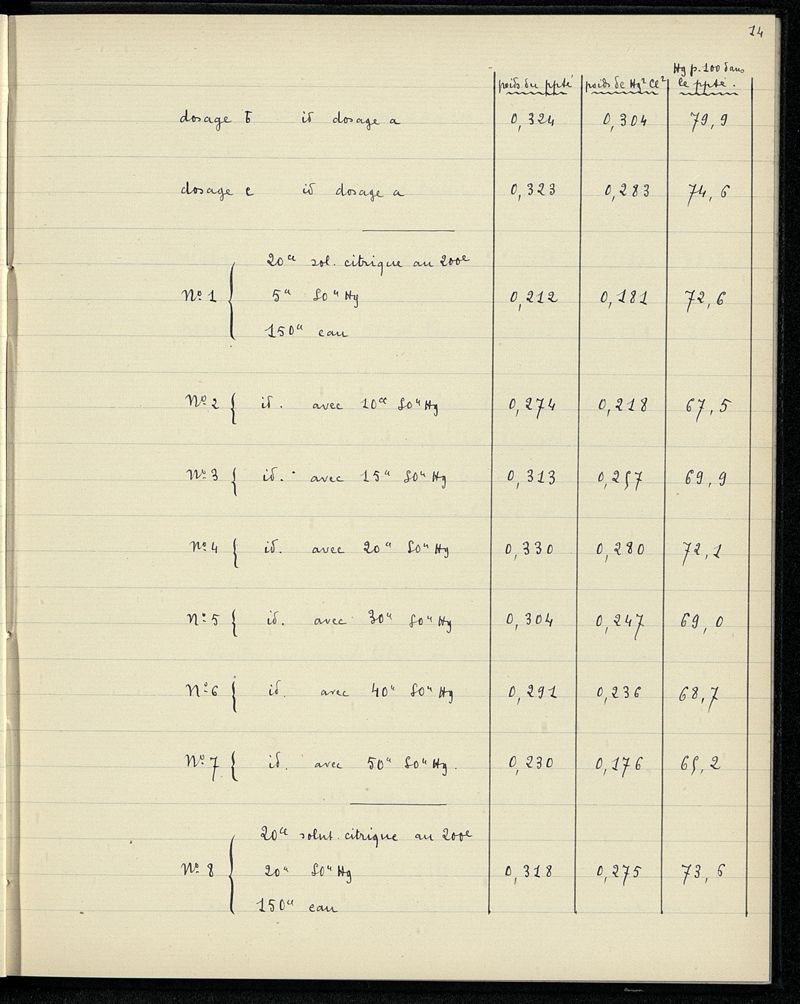 14
Hg p. 100 dans
poids du ppté poids de Hg² Cl² le ppté.
dosage b id dosage a 0,324 0,304 79,9
dosage c id dosage a 0,323 0,283 74,6
20cc sol. citrique au 200e
No 1 { 5cc SO⁴Hg 0,212 0,181 72,6
150cc eau
No 2 { id. avec 10cc SO⁴Hg 0,274 0,218 67,5
No 3 { id. avec 15cc SO⁴Hg 0,313 0,257 69,9
No 4 { id. avec 20cc SO⁴Hg 0,330 0,280 72,1
No 5 { id. avec 30cc SO⁴Hg 0,304 0,247 69,0
No 6 { id. avec 40cc SO⁴Hg 0,291 0,236 68,7
No 7 { id. avec 50cc SO⁴Hg. 0,230 0,176 65,2
20cc solut. citrique au 200e
No 8 { 20cc SO⁴Hg 0,318 0,275 73,6
150cc eau